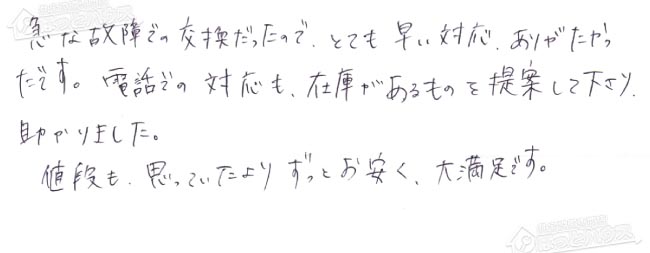 急な故障での交換だったので、とても早い対応、ありがたかっ
たです。電話での対応も、在庫があるものを提案して下さり、
助かりました。
値段も、思っていたよりずっとお安く、大満足です。